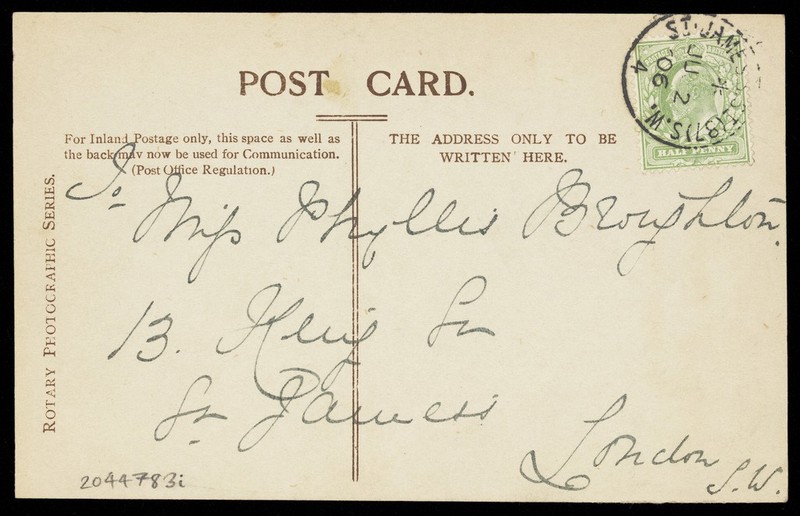 POST CARD.
For Inland Postage only, this space as well as
the back may now be used for Communication.
(Post Office Regulation.)
THE ADDRESS ONLY TO BE
WRITTEN HERE.
ROTARY PHOTOGRAPHIC SERIES.
HALF PENNY
JU 2
06
4
S.W.
To
Miss Phyllis Broughton.
13. King St
St James's
London
S.W.
2044783i